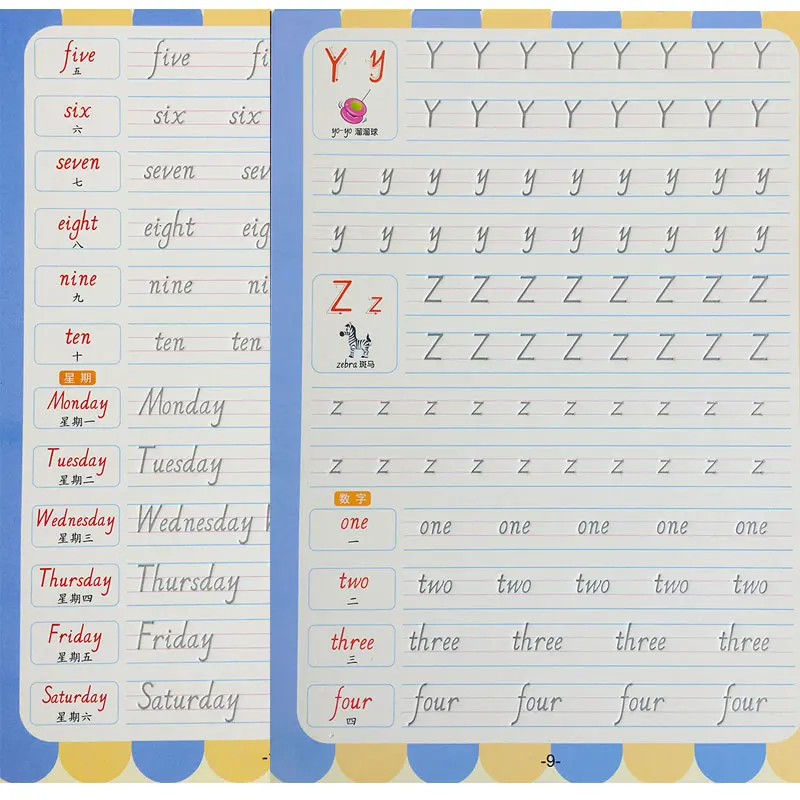 five five fi
五
six six six
六
seven seven seve
七
eight eight eig
八
nine nine ni
九
ten ten ten
十
星期
Monday Monday
星期一
Tuesday Tuesday
星期二
Wednesday Wednesday W
星期三
Thursday Thursday
星期四
Friday Friday
星期五
Saturday Saturday
星期六
Y y Y Y Y Y Y Y Y Y
Y Y Y Y Y Y Y Y
yo-yo 溜溜球
y y y y y y y y y y
y y y y y y y y y y
Z z Z Z Z Z Z Z Z Z
Z Z Z Z Z Z Z Z
zebra 斑马
z z z z z z z z z z
z z z z z z z z z z
数字
one one one one one one
一
two two two two two two
二
three three three three three
三
four four four four four
四
-9-